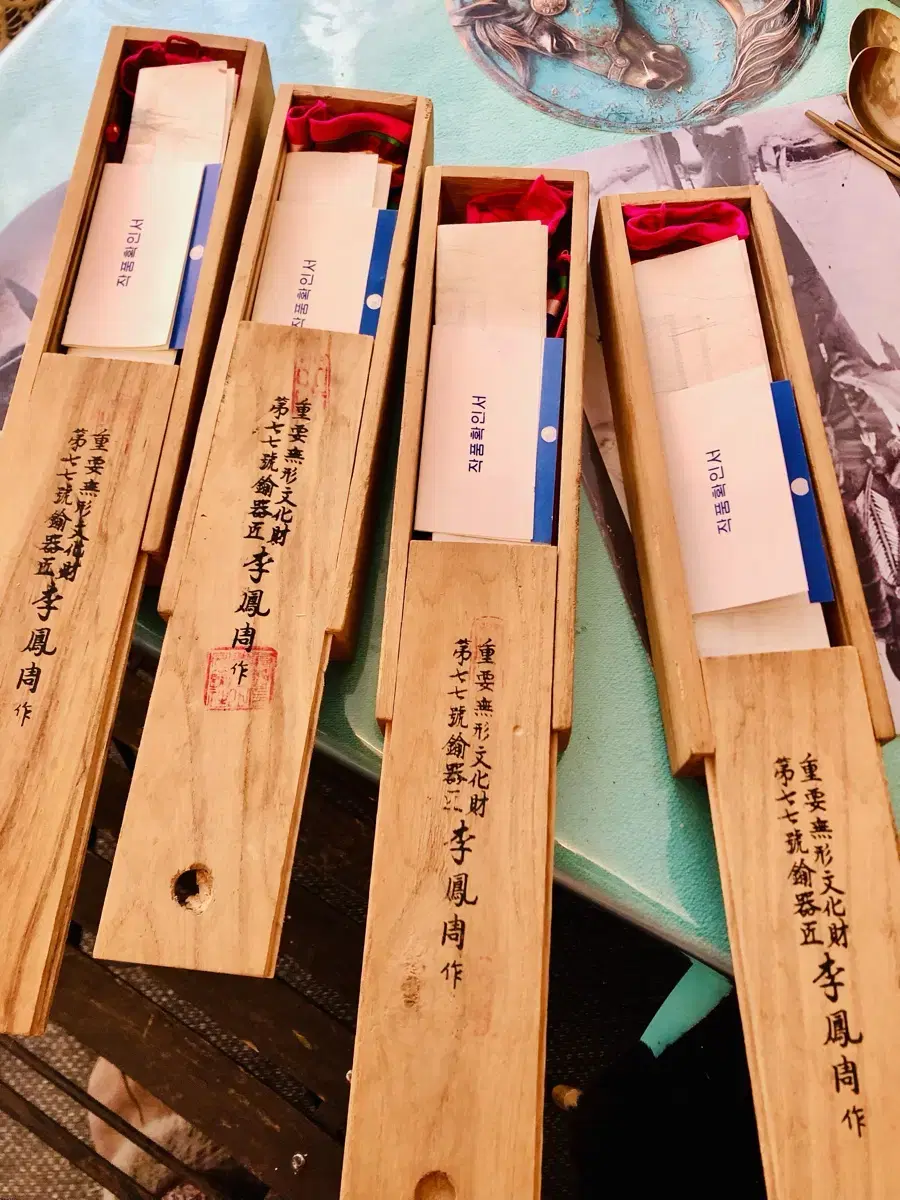 작품확인서
重要無形文化財
第七七號鍮器匠
李鳳周作
작품확인서
重要無形文化財
第七七號鍮器匠
李鳳周作
작품확인서
重要無形文化財
第七七號鍮器匠
李鳳周作
작품확인서
重要無形文化財
第七七號鍮器匠
李鳳周作